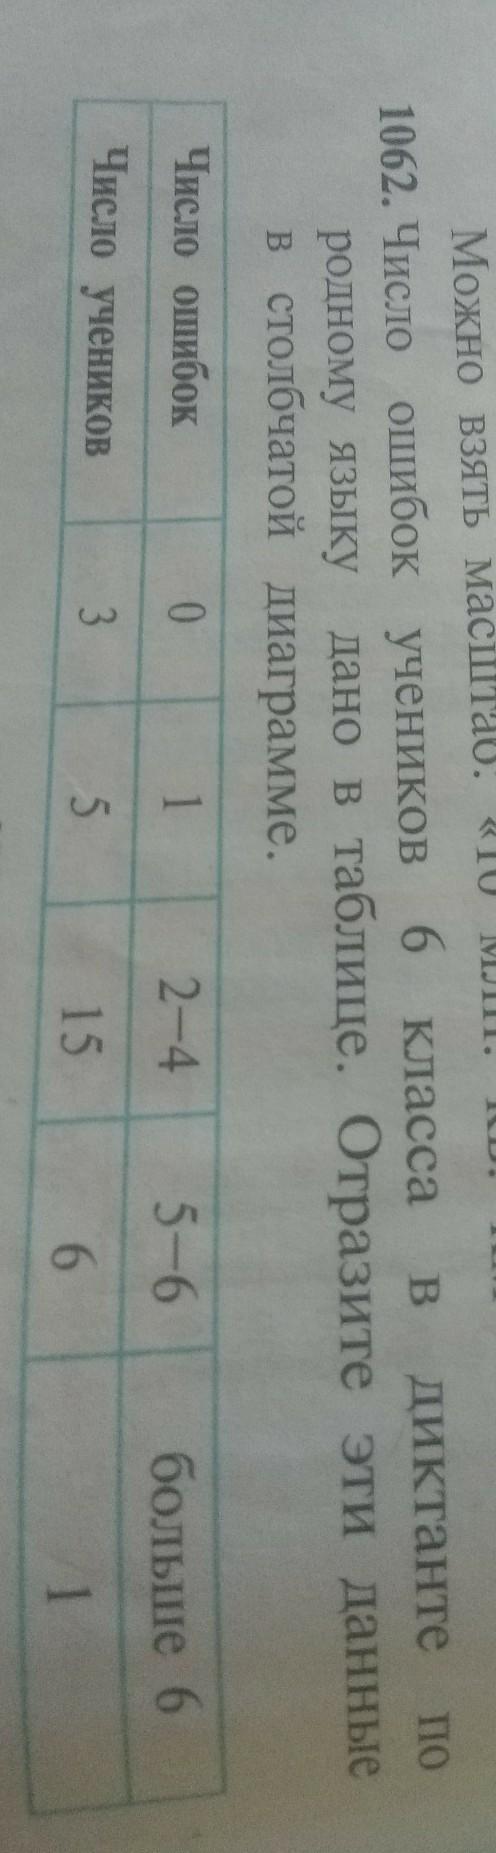 Можно взять масштаб: «10 млн. кв.
1062. Число ошибок учеников 6 класса в диктанте по
родному языку дано в таблице. Отразите эти данные
в столбчатой диаграмме.
Число ошибок 0 1 2–4 5–6 больше 6
Число учеников 3 5 15 6 1